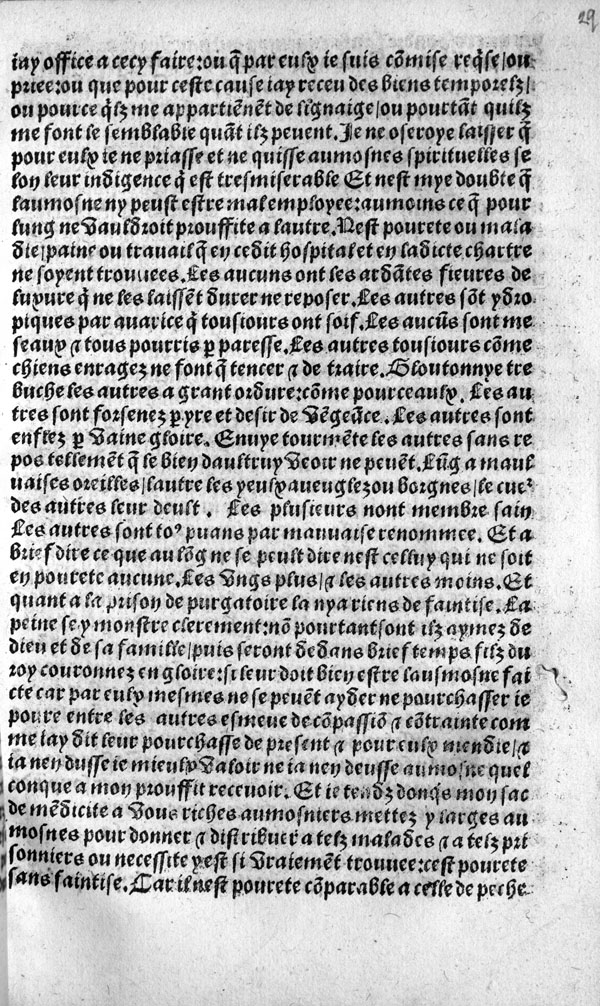 29
iay office a cecy faire:ou q̃ par eulx ie suis cõmise req̃se/ou
priee:ou que pour ceste cause iay receu des biens temporelz/
ou pource q̃lz me appartiẽnẽt de lignaige/ou pourtãt quilz
me font le semblable quãt ilz peuent.Je ne oseroye laisser q̃
pour eulx ie ne priasse et ne quisse aumosnes spirituelles se
lon leur indigence q̃ est tresmiserable Et nest mye doubte q̃
laumosne ny peust estre mal employee:aumoins ce q̃ pour
lung ne vauldroit prouffite a lautre.Nest pourete ou mala
die/paine ou trauail q̃ en cedit hospital et en ladicte chartre
ne soyent trouuees.Les aucuns ont les ardãtes fieures de
luxure q̃ ne les laissẽt durer ne reposer.Les autres sõt ydro
piques par auarice q̃ tousiours ont soif.Les aucũs sont me
seaux ⁊ tous pourris p̱ paresse.Les autres tousiours cõme
chiens enragez ne font q̃ tencer ⁊ de traire.Gloutonnye tre
buche les autres a grant ordure:cõme pourceaulx. Les au
tres sont forsenez p̱ yre et desir de vẽgeãce.Les autres sont
enflez p̱ vaine gloire.Enuye tourmẽte les autres sans re
pos tellemẽt q̃ le bien daultruy veoir ne peuẽt.Lũg a maul
uaises oreilles/lautre les yeulx aueuglez ou borgnes/le cueʳ
des autres leur deult. Les plusieurs nont membre sain
Les autres sont toꝰ puans par mauuaise renommee. Et a
brief dire ce que au lõg ne se peult dire nest celluy qui ne soit
en pourete aucune.Les vngs plus/⁊ les autres moins.Et
quant a la prison de purgatoire la nya riens de faintise.La
peine se y monstre clerement:nõ pourtant sont ilz aymez de
dieu et de sa famille/puis seront dedans brief temps filz du
roy couronnez en gloire:si leur doit bien estre laumosne fai
cte car par eulx mesmes ne se peuẽt ayder ne pourchasser ie
poure entre les autres esmeue de cõpassiõ ⁊ cõtrainte com
me iay dit leur pourchasse de present ⁊ pour eulx mendie/⁊
ia nen dusse ie mieulx valoir ne ia nen deusse aumosne quel
conque a mon prouffit receuoir. Et ie tendz donq̃s mon sac
de mẽdicite a vous riches aumosniers mettez y larges au
mosnes pour donner ⁊ distribuer a telz malades ⁊ a telz pri
sonniers ou necessite y est si vraiemẽt trouuee:cest pourete
sans faintise.Car il nest pourete cõparable a celle de peche